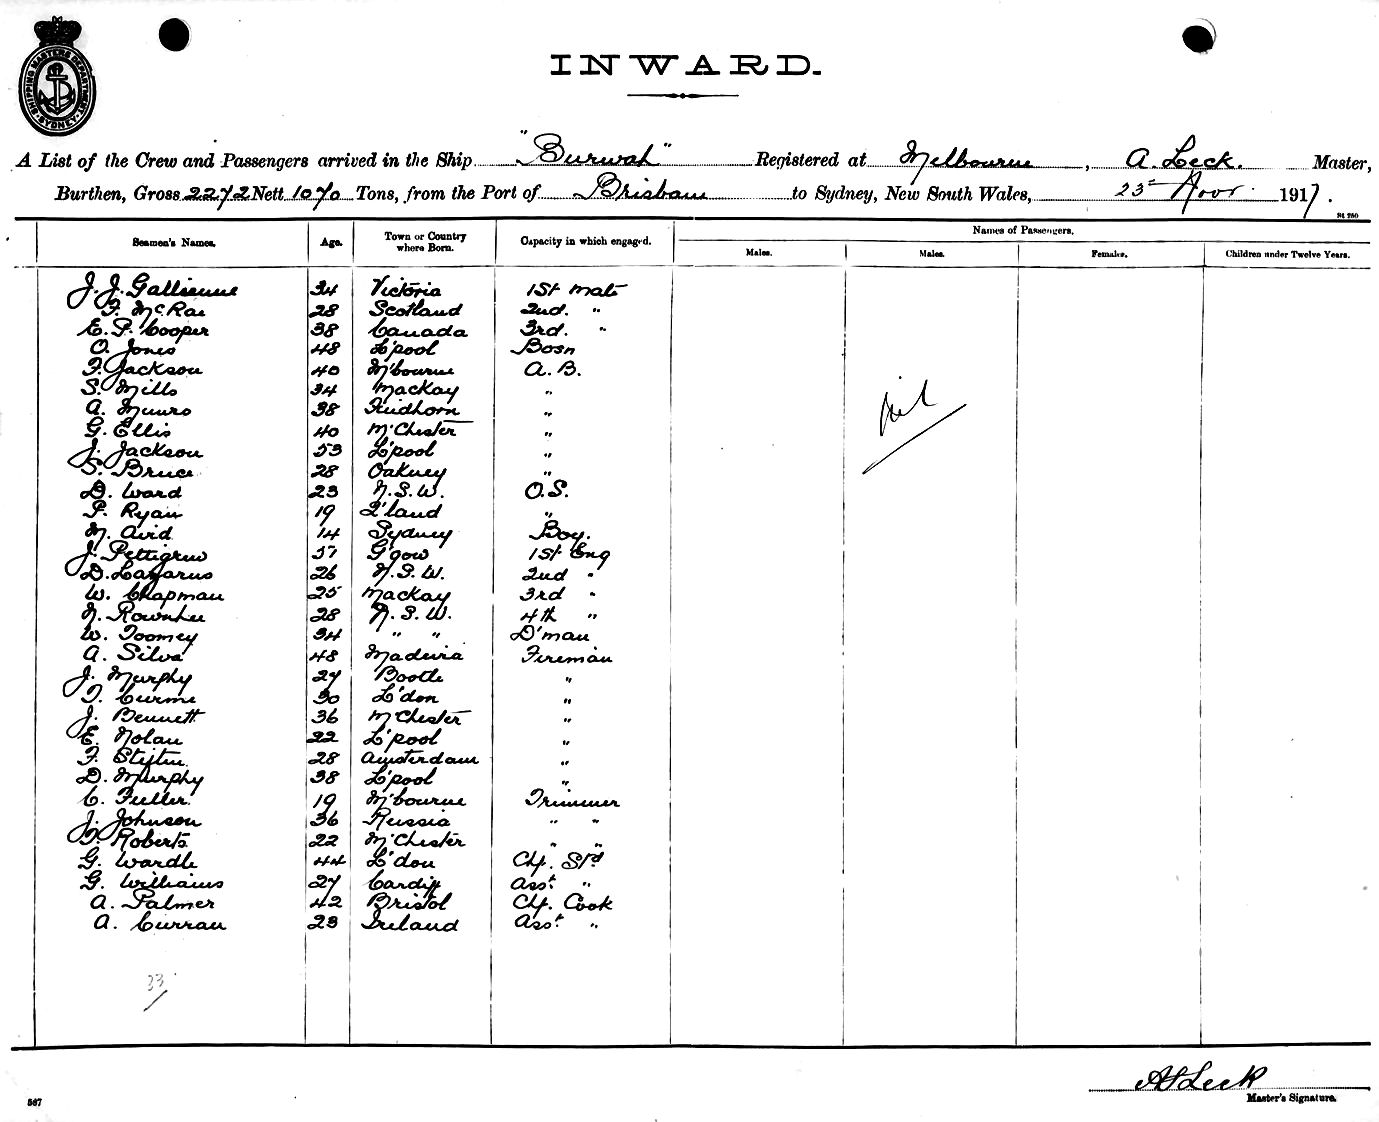 SHIPPING MASTERS DEPARTMENT SYDNEY
INWARD.
A List of the Crew and Passengers arrived in the Ship "Burwah" Registered at Melbourne, A Leck. Master,
Burthen, Gross 2272 Nett 1070 Tons, from the Port of Brisbane to Sydney, New South Wales, 23rd Novr. 1917.
St 250
Names of Passengers.
Seamen's Names. Age. Town or Country where Born. Capacity in which engaged. Males. Males. Females. Children under Twelve Years.
J. J. Gallienne 34 Victoria 1st mate
F. McRae 28 Scotland 2nd. "
E. P. Cooper 38 Canada 3rd. "
O. Jones 48 L'pool Bosn
F. Jackson 40 M'bourne A.B.
S. Mills 34 Mackay "
A. Munro 38 Findhorn "
G. Ellis 40 M'Chester "
J. Jackson 53 L'pool "
S. Bruce 28 Oakney "
D. Ward 23 N.S.W. O.S.
P. Ryan 19 Q'land "
M. Avid 14 Sydney Boy.
J. Pettigrew 57 G'gow 1st Eng
D. Lazarus 26 N.S.W. 2nd "
W. Chapman 25 Mackay 3rd "
N. 28 N.S.W. 4th "
W. Toomey 34 " " D'man
A. Silva 48 Madeira Fireman
J. Murphy 27 Bootle "
T. Curme 30 L'don "
J. Bennett 36 M'Chester "
E. Nolan 22 L'pool "
F. 28 Amsterdam "
D. Murphy 38 L'pool "
C. Fuller 19 M'bourne Trimmer
J. Johnson 36 Russia " "
T. Roberts 22 M'Chester " "
G. Wardle 44 L'don Chf. Std
G. Williams 27 Cardiff Asst. "
A. Palmer 42 Bristol Chf. Cook
A. Curran 23 Ireland Asst. "
Nil
33
A Leck
Master's Signature.
567